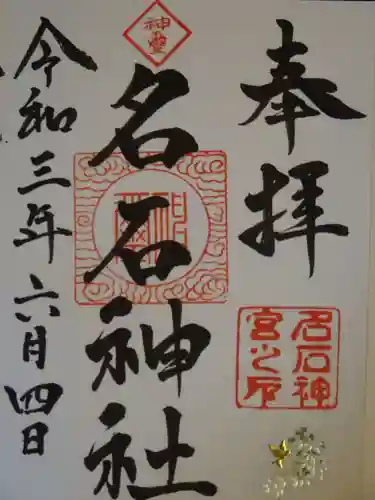 奉拝
神霊
名石神社
名石神
宮之印
令和三年六月四日